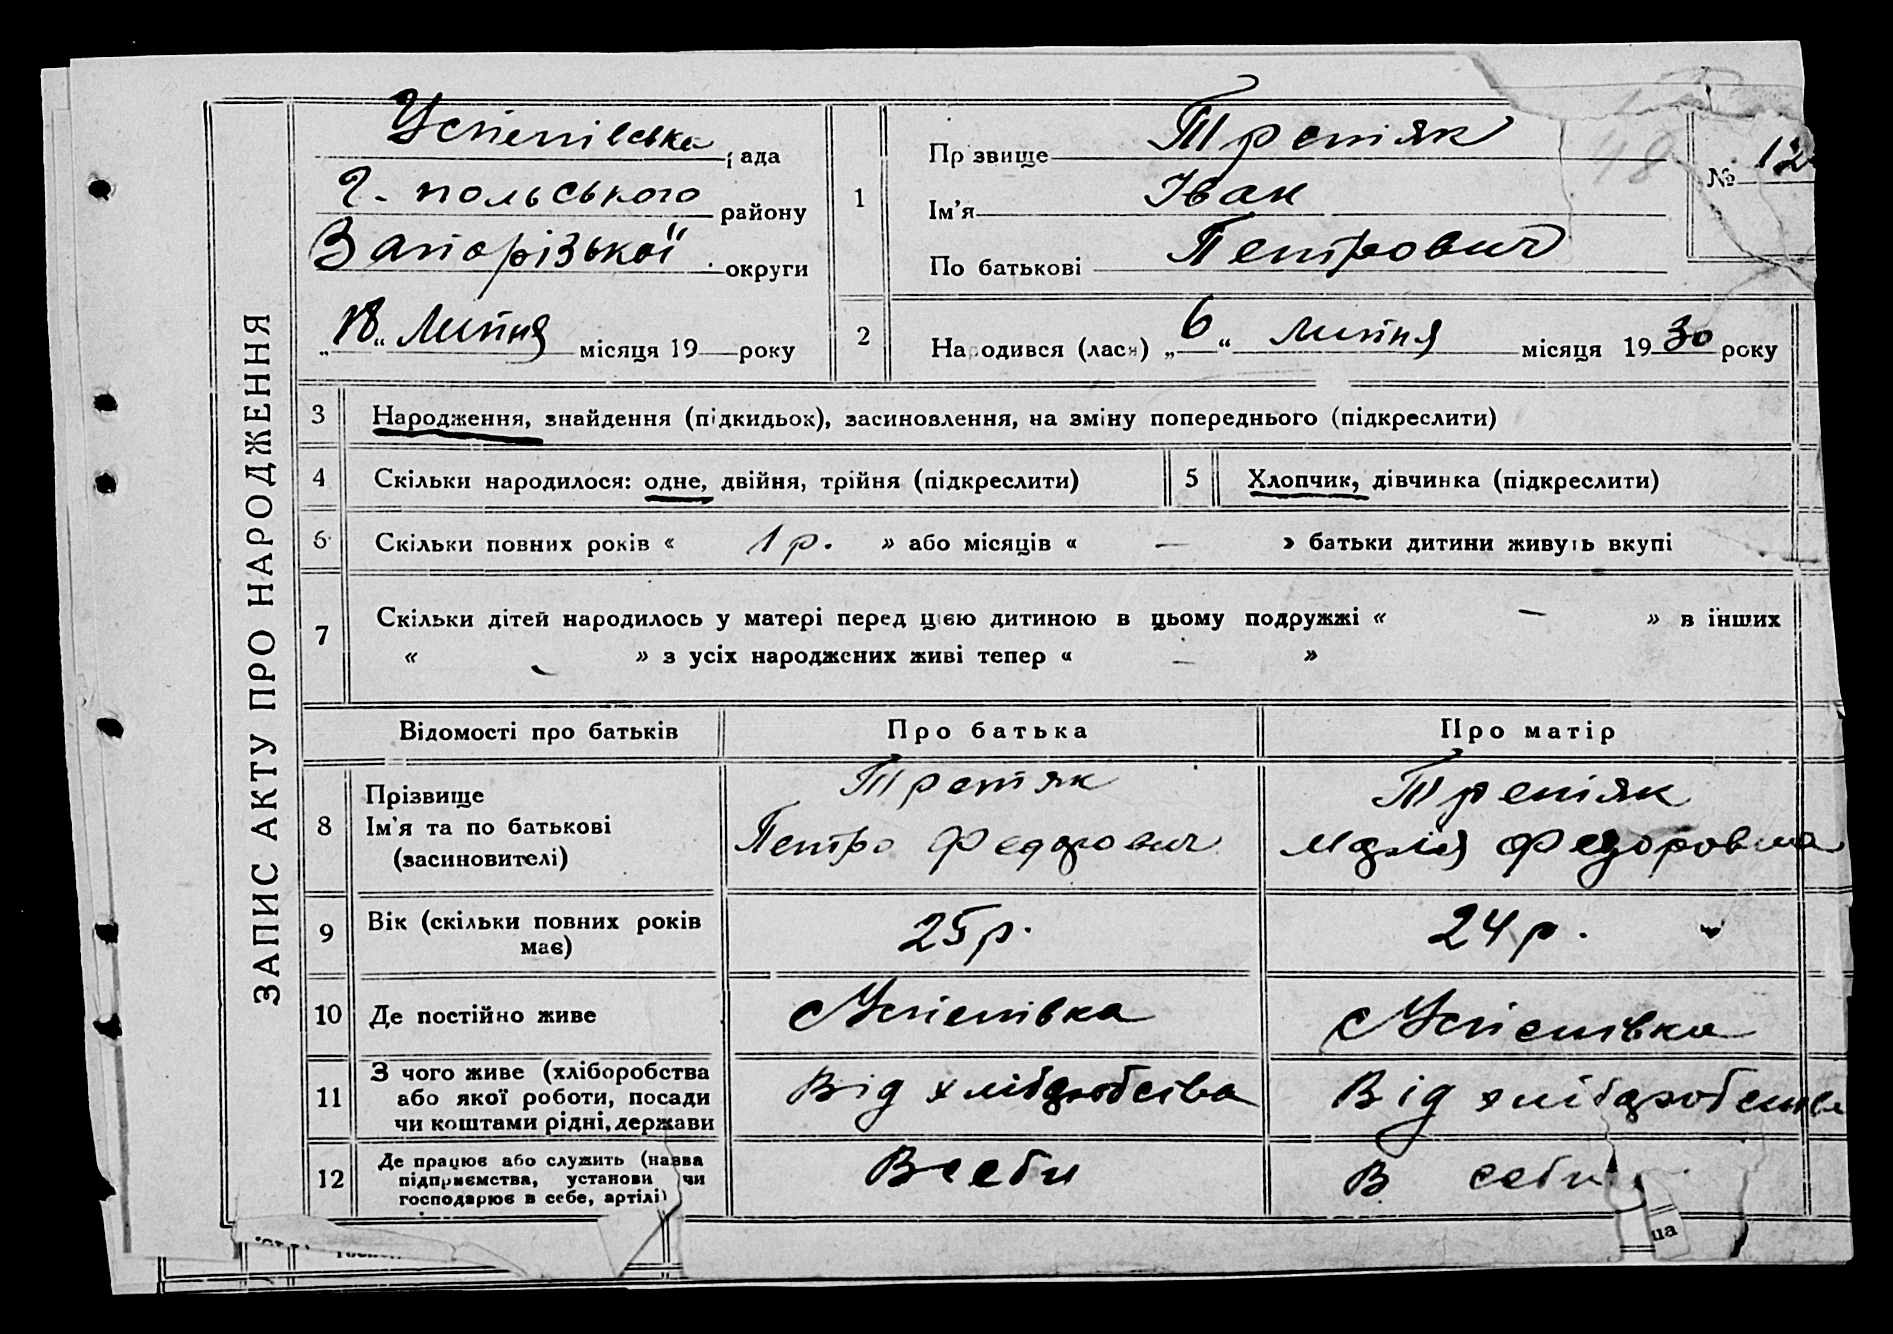 ЗАПИС АКТУ ПРО НАРОДЖЕННЯ
Успенівська рада
Г. польського району
Запорізької округи
„18“ Липня місяця 19 року
1
Прізвище Третяк
Ім’я Іван
По батькові Петрович
48
№ 12
2
Народився (лася) „6“ липня місяця 1930 року
3 Народження, знайдення (підкидьок), засиновлення, на зміну попереднього (підкреслити)
4 Скільки народилося: одне, двійня, трійня (підкреслити)
5 Хлопчик, дівчинка (підкреслити)
6 Скільки повних років « 1 р. » або місяців « — » батьки дитини живуть вкупі
7 Скільки дітей народилось у матері перед цією дитиною в цьому подружжі « — » в інших
« - » з усіх народжених живі тепер « — »
Відомості про батьків Про батька Про матір
8
Прізвище
Ім’я та по батькові
(засиновителі)
Третяк
Петро Федорович
Третяк
Марія Федоровна
9 Вік (скільки повних років
має)
25 р.
24 р.
10 Де постійно живе
с Успенівка
с Успенівка
11
З чого живе (хліборобства
або якої роботи, посади
чи коштами рідні, держави
Від хліборобства
Від хліборобства
12
Де працює або служить (назва
підприємства, установи чи
господарює в себе, артілі)
В себи
В себи
ца